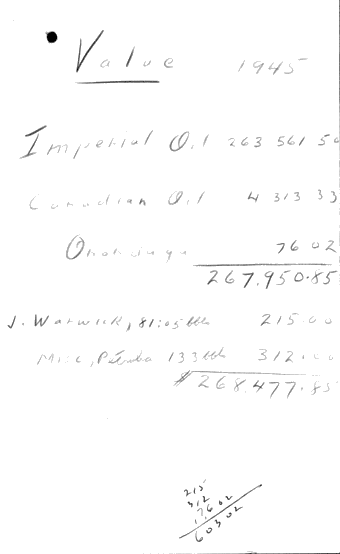 Value 1945
Imperial Oil 263 561 50
Canadian Oil 4 313 33
76 02
267.950.85
J. Warwick, 81:05 bbls 215.00
Misc, 133 bbls 312.00
$268.477.85
215
312
76 02
603 02